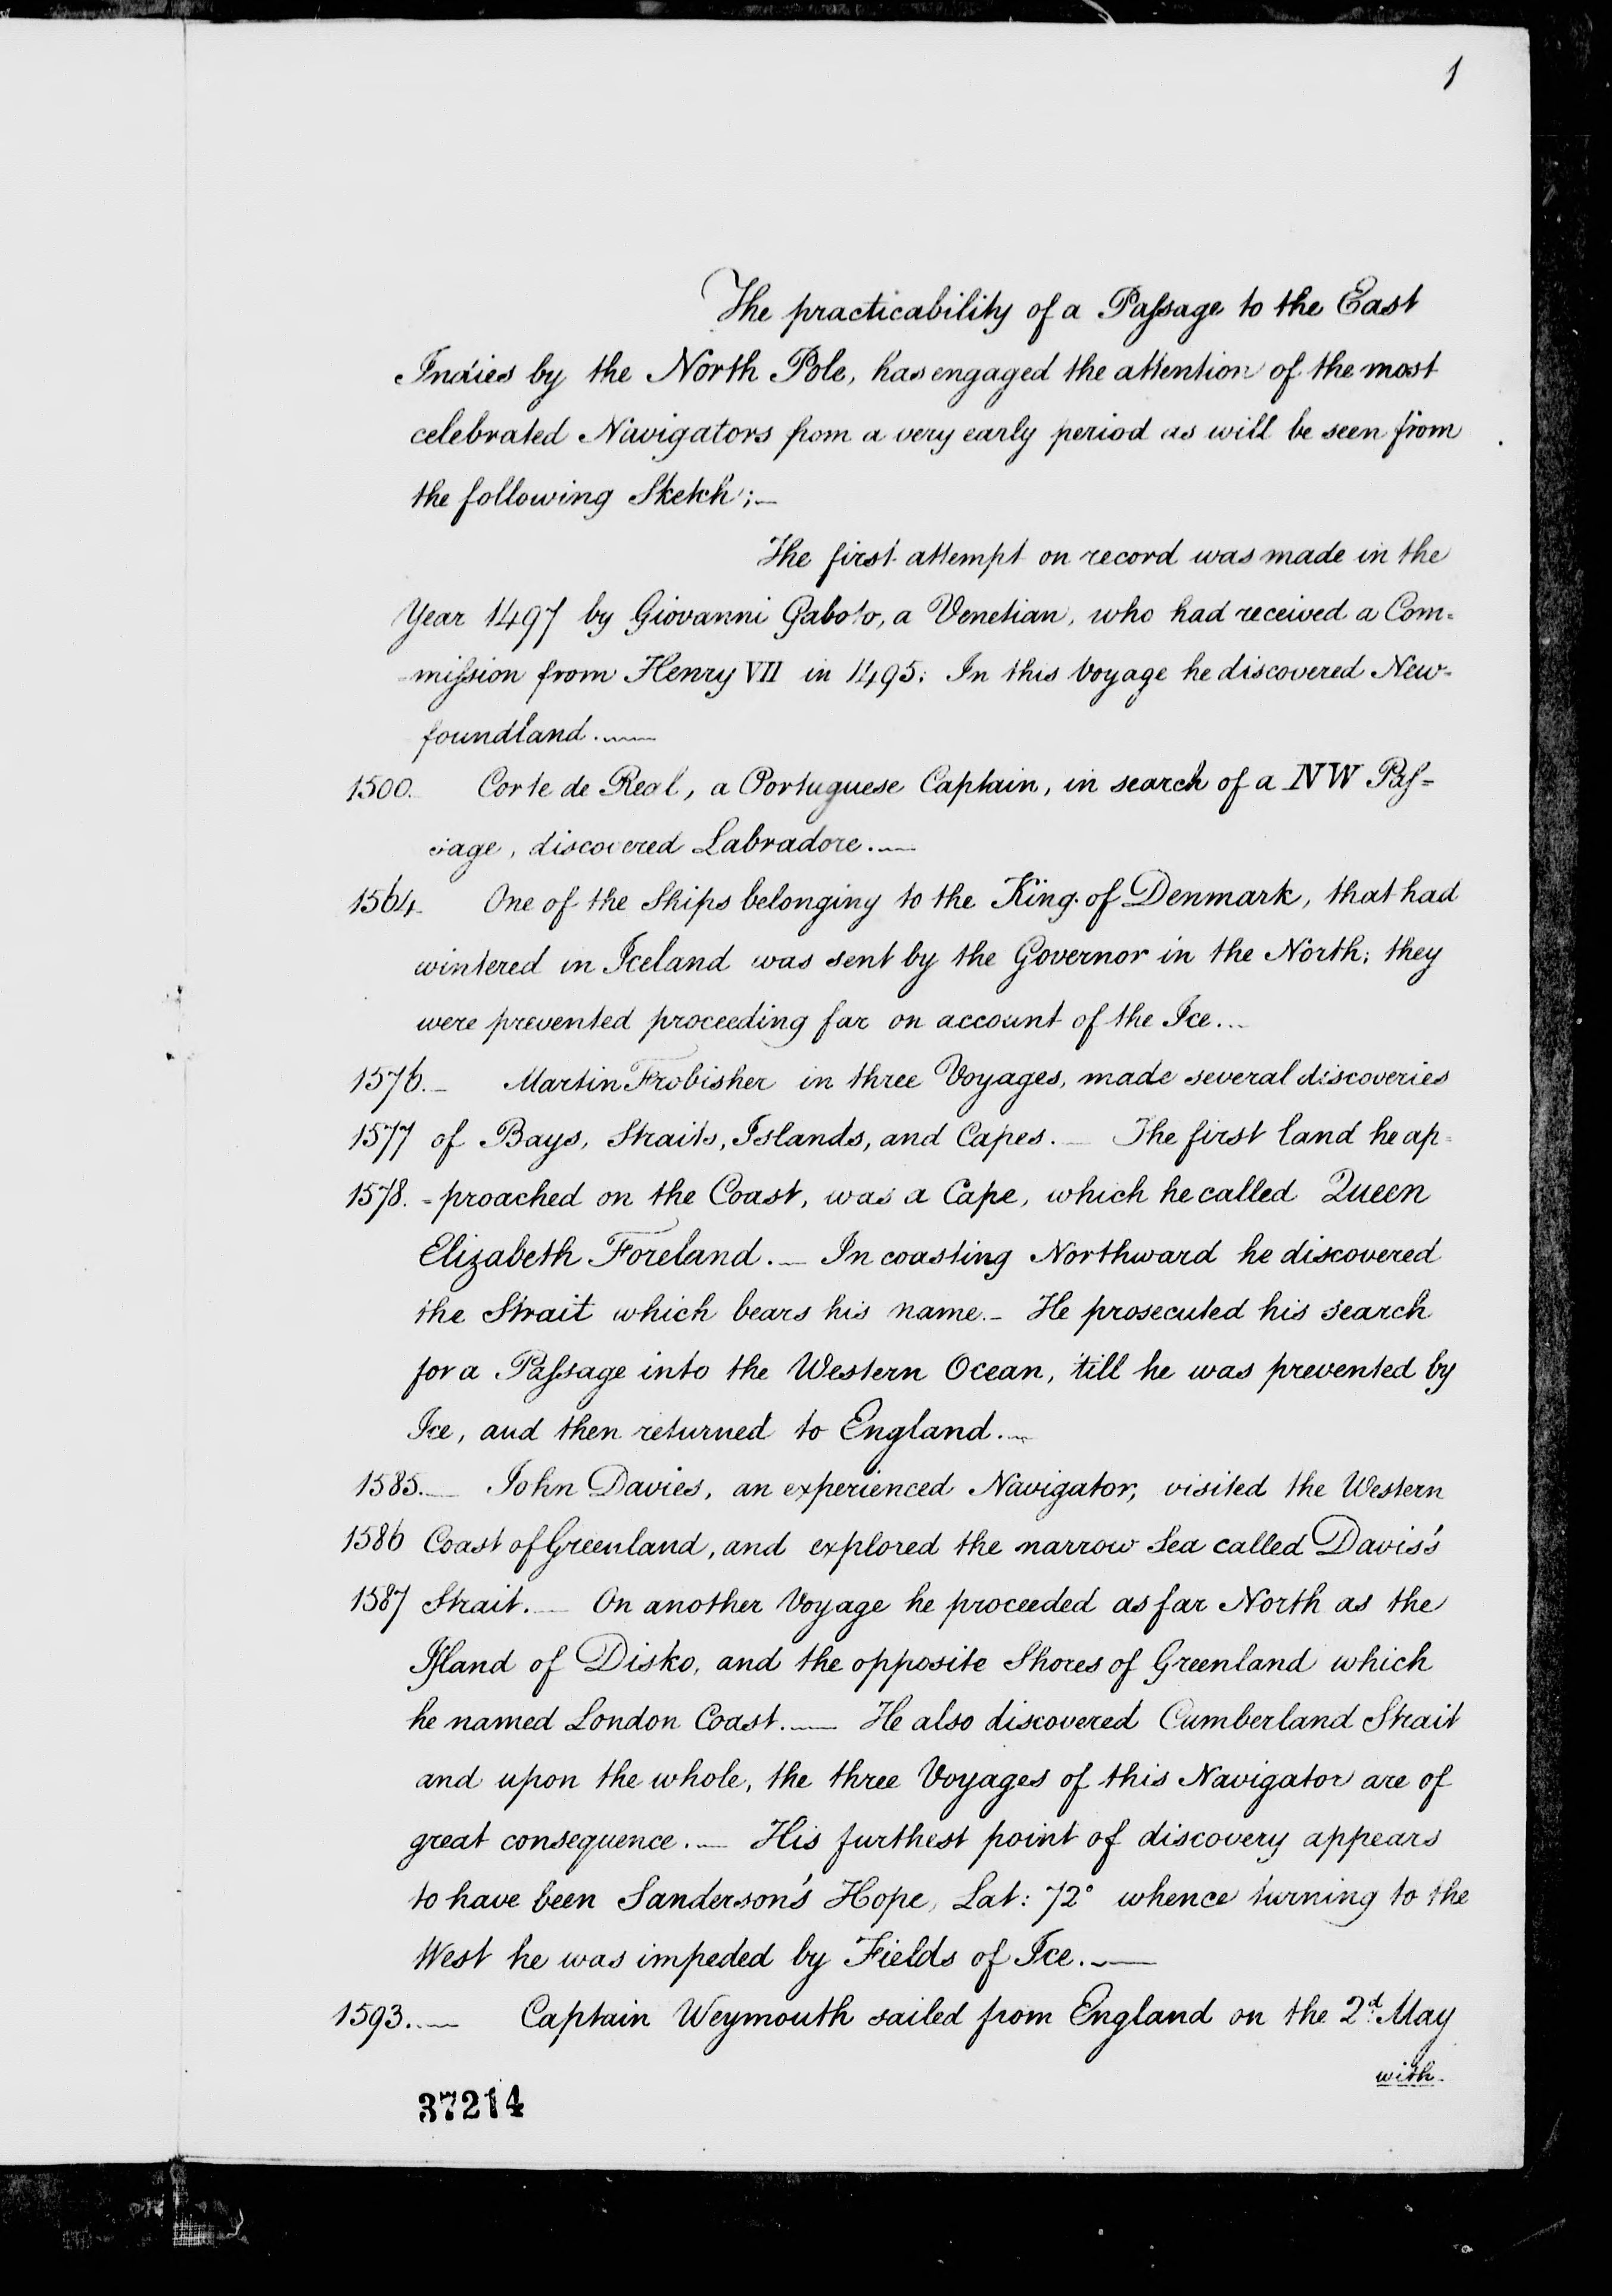 1
The practicability of a Paſsage to the East
Indies by the North Pole, has engaged the attention of the most
celebrated Navigators from a very early period as will be seen from
the following Sketch;—
The first attempt on record was made in the
Year 1497 by Giovanni Gaboto, a Venetian, who had received a Com=
-miſsion from Henry VII in 1495: In this Voyage he discovered New-
foundland.—
1500. Corte de Real, a Portuguese Captain, in search of a NW Paſ=
sage, discovered Labradore.—
1564. One of the Ships belonging to the King of Denmark, that had
wintered in Iceland was sent by the Governor in the North; they
were prevented proceeding far on account of the Ice.—
1576.— Martin Frobisher in three Voyages, made several discoveries
1577 of Bays, Straits, Islands, and Capes.— The first land he ap=
1578. =proached on the Coast, was a Cape, which he called Queen
Elizabeth Foreland.— In coasting Northward he discovered
the Strait which bears his name.— He prosecuted his search
for a Paſsage into the Western Ocean, 'till he was prevented by
Ice, and then returned to England.—
1585.— John Davies, an experienced Navigator, visited the Western
1586 Coast of Greenland, and explored the narrow Sea called Davis's
1587 Strait.— On another Voyage he proceeded as far North as the
Iſland of Disko, and the opposite Shores of Greenland which
he named London Coast.— He also discovered Cumberland Strait
and upon the whole, the three Voyages of this Navigator are of
great consequence.— His furthest point of discovery appears
to have been Sanderson's Hope, Lat: 72° whence turning to the
West he was impeded by Fields of Ice.—
1593.— Captain Weymouth sailed from England on the 2d. May
with
37214